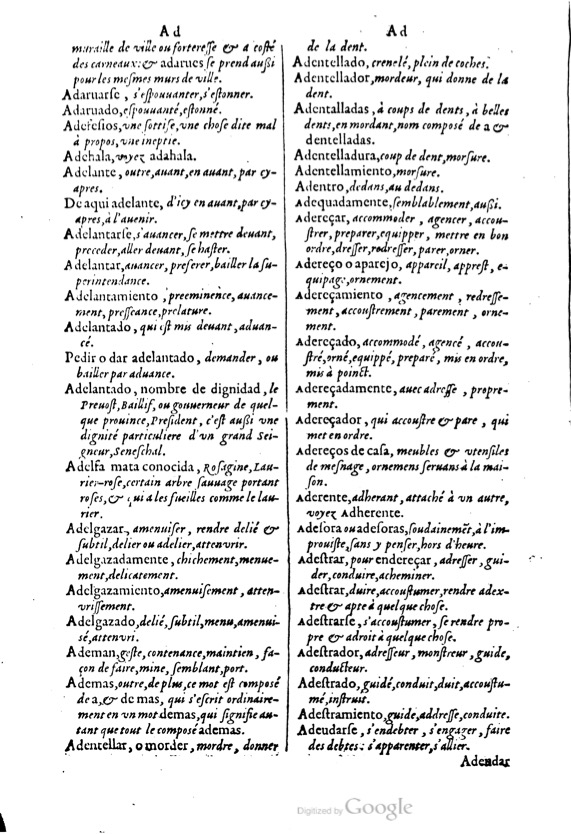 Ad
muraille de ville ou forteresse & a costé
des carneaux: & adarues se prend außi
pour les mesmes murs de ville.
Adaruarse, s'espouuanter, s'estonner.
Adaruado, espouuanté, estonné.
Adefesios, vne sottise, vne chose dite mal
à propos, vne ineptie.
Adehala, voyez adahala.
Adelante, outre, auant, en auant, par cy-
apres.
De aqui adelante, d'icy en auant, par cy-
apres, à l'auenir.
Adelantarse, s'auancer, se mettre deuant,
preceder, aller deuant, se haster.
Adelantar, auancer, preferer, bailler la su-
perintendance.
Adelantamiento, preeminence, auance-
ment, presseance, prelature.
Adelantado, qui est mis deuant, aduan-
cé.
Pedir o dar adelantado, demander, ou
bailler par aduance.
Adelantado, nombre de dignidad, le
Preuost, Baillif, ou gouuerneur de quel-
que prouince, President, c'est außi vne
dignité particuliere d'vn grand Sei-
gneur, Seneschal.
Adelfa mata conocida, Rosagine, Lau-
rier-rose, certain arbre sauuage portant
roses, & qui a les fueilles comme le lau-
rier.
Adelgazar, amenuiser, rendre delié &
subtil, delier ou adelier, attenvrir.
Adelgazadamente, chichement, menue-
ment, delicatement.
Adelgazamiento, amenuisement, atten-
vrissement.
Adelgazado, delié, subtil, menu, amenui-
sé, attenvri.
Ademan, geste, contenance, maintien, fa-
çon de faire, mine, semblant, port.
Ademas, outre, de plus, ce mot est composé
de a, & de mas, qui s'escrit ordinaire-
ment en vn mot demas, qui signifie au-
tant que tout le composé ademas.
Adentellar, o morder, mordre, donner
Ad
de la dent.
Adentellado, crenelé, plein de coches.
Adentellador, mordeur, qui donne de la
dent.
Adentalladas, à coups de dents, à belles
dents, en mordant, nom composé de a &
dentelladas.
Adentelladura, coup de dent, morsure.
Adentellamiento, morsure.
Adentro, dedans, au dedans.
Adequadamente, semblablement, außi.
Adereçar, accommoder, agencer, accou-
strer, preparer, equipper, mettre en bon
ordre, dresser, redresser, parer, orner.
Adereço o aparejo, appareil, apprest, e-
quipage, ornement.
Adereçamiento, agencement, redresse-
ment, accoustrement, parement, orne-
ment.
Adereçado, accommodé, agencé, accou-
stré, orné, equippé, preparé, mis en ordre,
mis à poinct.
Adereçadamente, auec adresse, propre-
ment.
Adereçador, qui accoustre & pare, qui
met en ordre.
Adereços de casa, meubles & vtensiles
de mesnage, ornemens seruans à la mai-
son.
Aderente, adherant, attaché à vn autre,
voyez Adherente.
Adesora ou adesoras, soudainemēt, à l'im-
prouiste, sans y penser, hors d'heure.
Adestrar, pour endereçar, adresser, gui-
der, conduire, acheminer.
Adestrar, duire, accoustumer, rendre adex-
tre & apte à quelque chose.
Adestrarse, s'accoustumer, se rendre pro-
pre & adroit à quelque chose.
Adestrador, adresseur, monstreur, guide,
conducteur.
Adestrado, guidé, conduit, duit, accoustu-
mé, instruit.
Adestramiento, guide, addresse, conduite.
Adeudarse, s'endebter, s'engager, faire
des debtes: s'apparenter, s'allier.
Adeudar
Digitized by Google